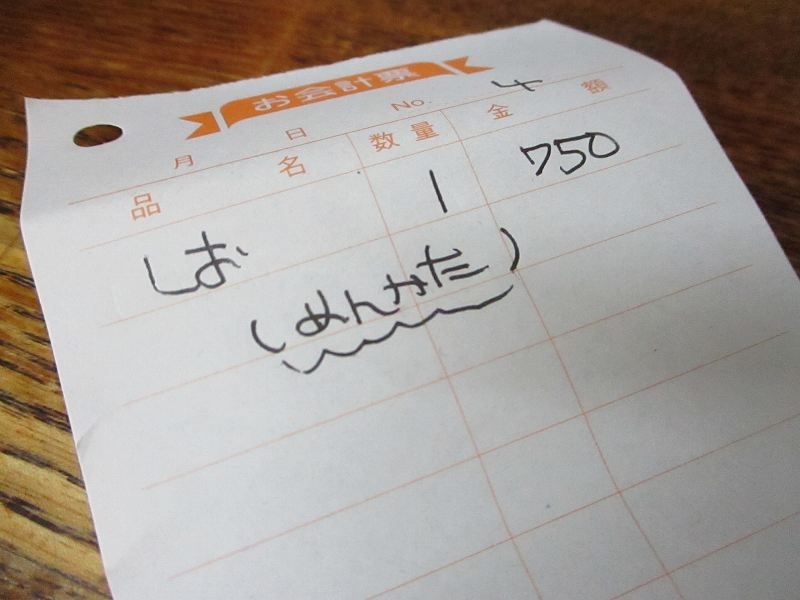 お会計票
月 日 No. 4
品 名 数量 金 額
しお 1 750
(めんかた)